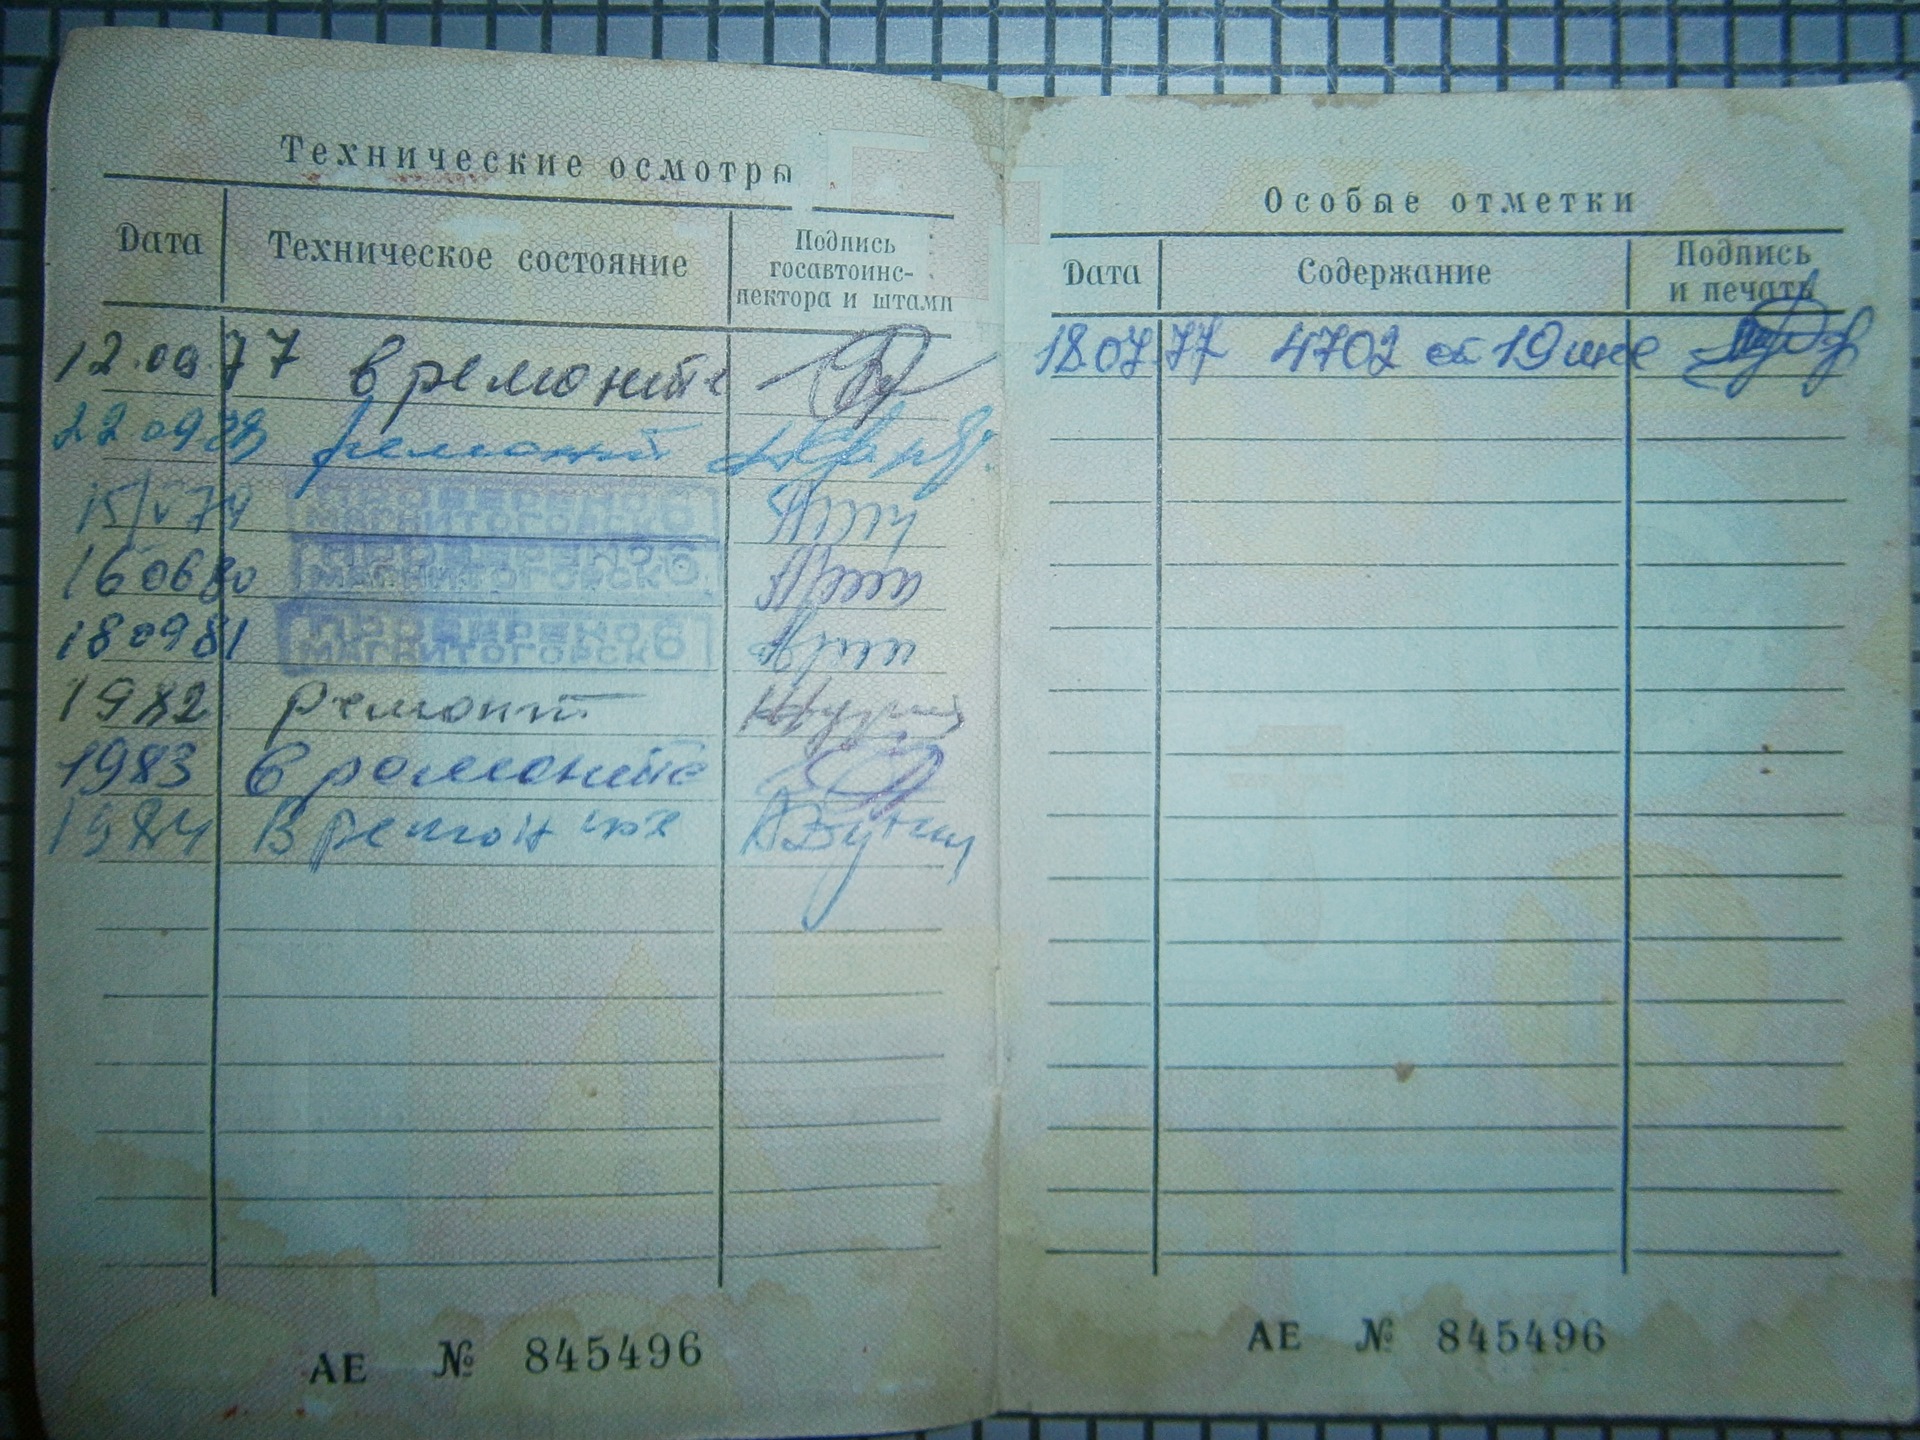 Технические осмотры
Дата
Техническое состояние
Подпись
госавтоинс-
пектора и штамп
12.09.77 в ремонте
22 09 78 ремонт
15/V 79 ПРОВЕРЕНО 6
МАГНИТОГОРСК
16 06 80 ПРОВЕРЕНО 6
МАГНИТОГОРСК
18 09 81 ПРОВЕРЕНО 6
МАГНИТОГОРСК
1982 ремонт
1983 в ремонте
1984 В ремонте
АЕ № 845496
Особые отметки
Дата
Содержание
Подпись
и печать
18.07.77 4702 от 19
АЕ № 845496